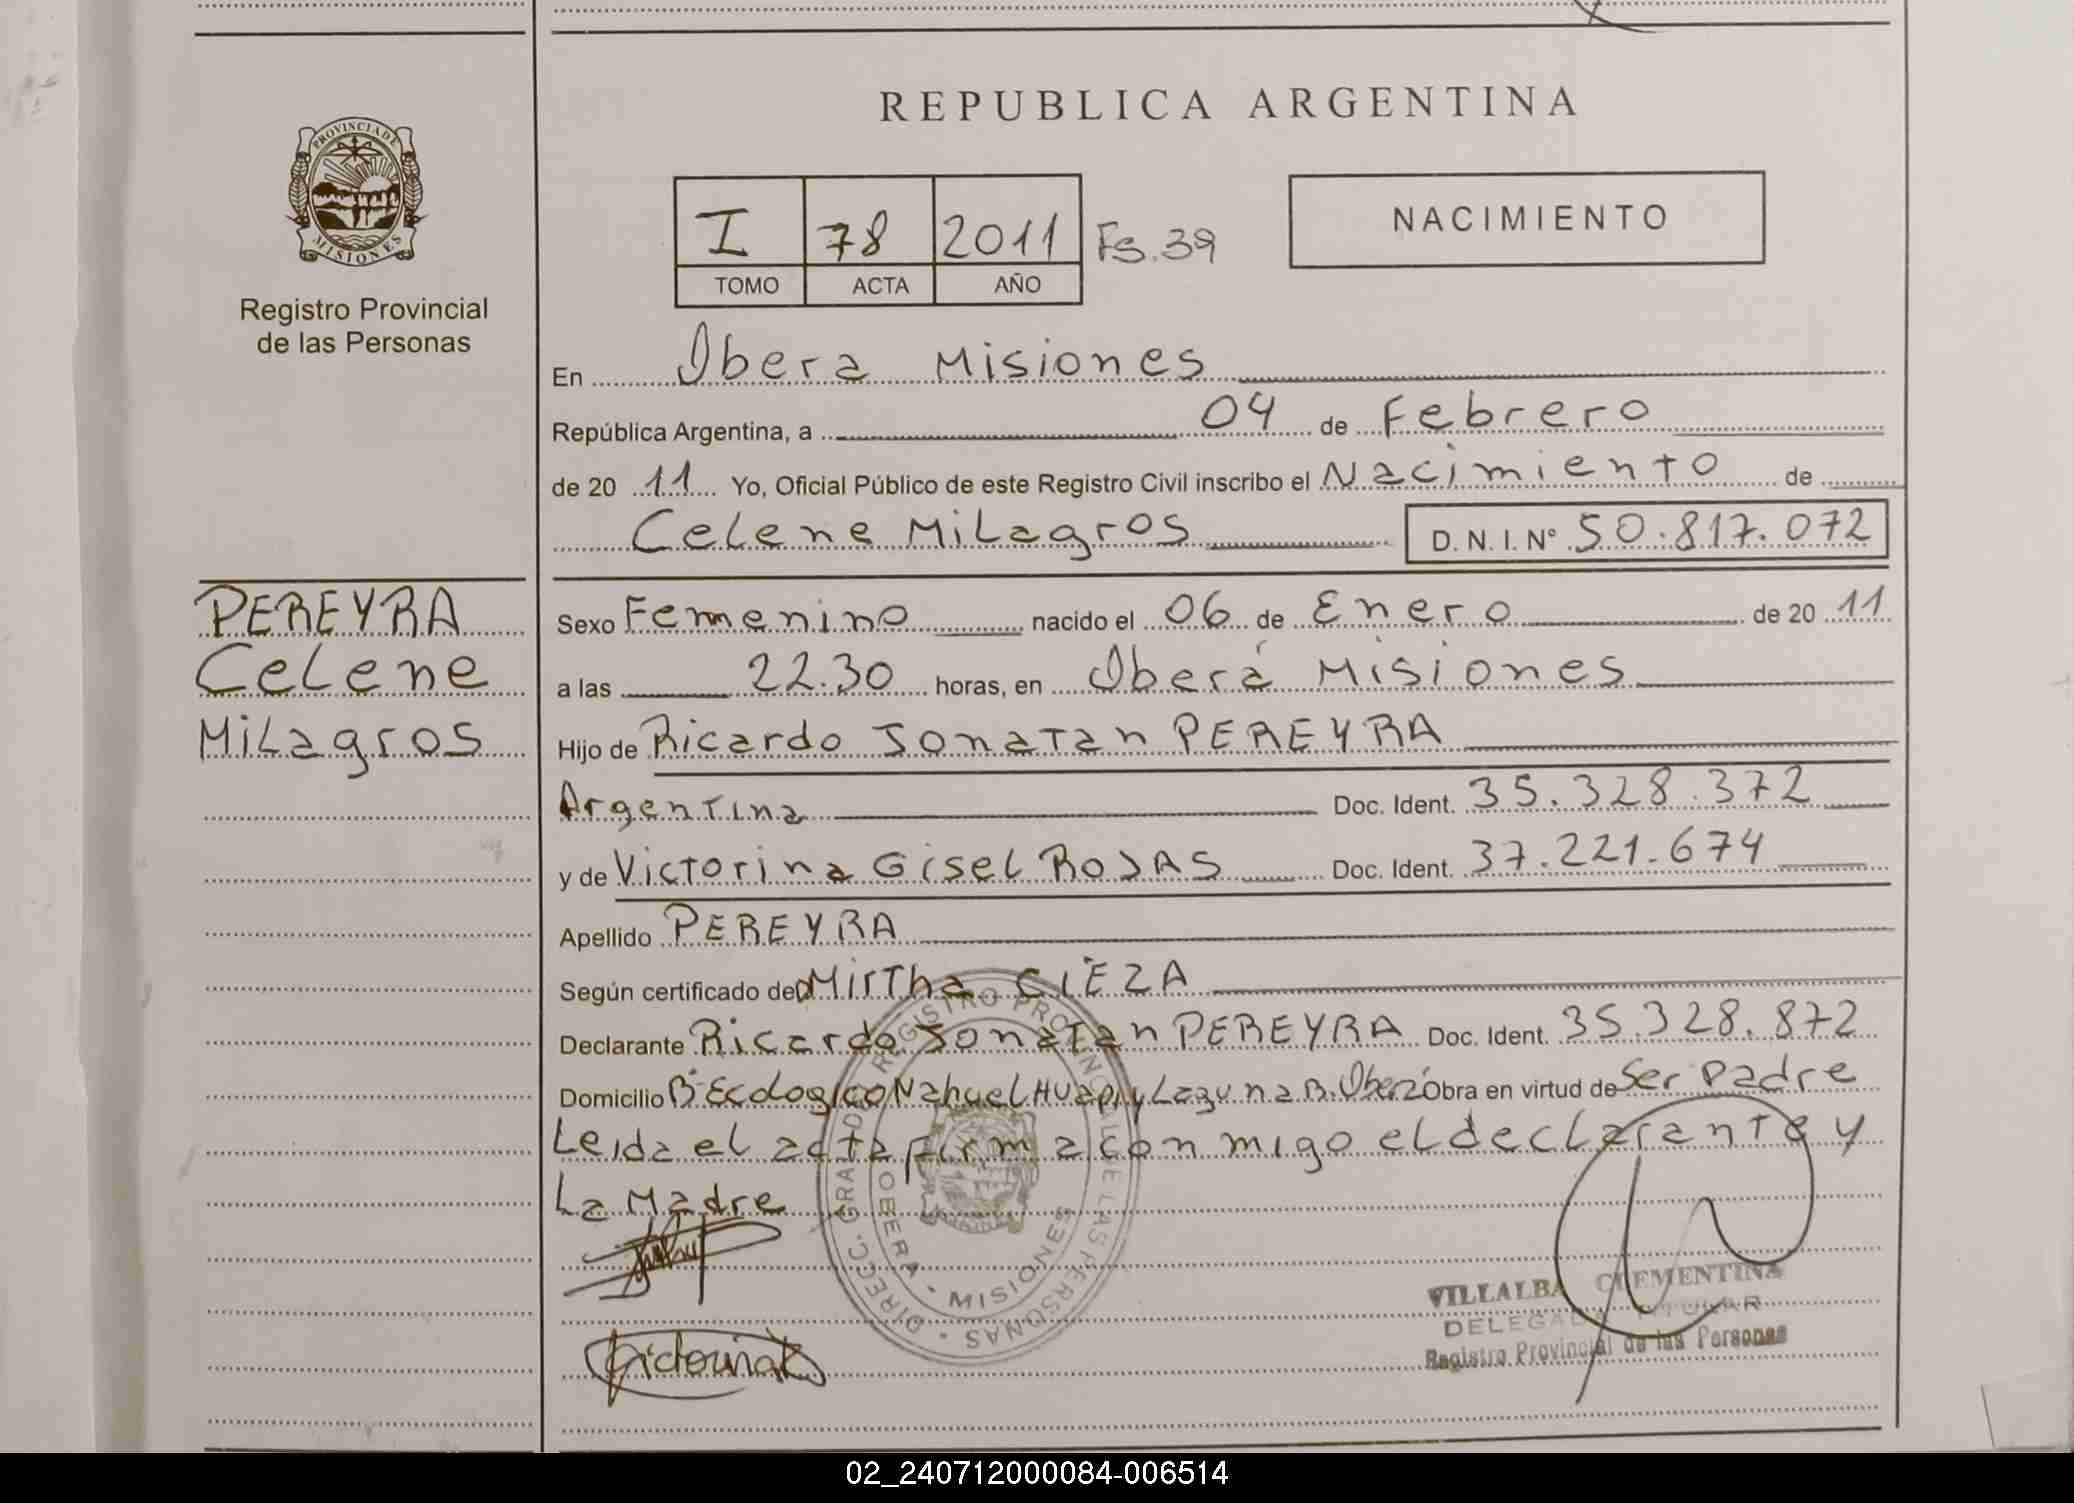 REPUBLICA ARGENTINA
PROVINCIA DE
MISIONES
Registro Provincial
de las Personas
I 78 2011 Fs.39
TOMO ACTA AÑO
NACIMIENTO
En Obera Misiones
República Argentina, a 04 de Febrero
de 20 11 Yo, Oficial Público de este Registro Civil inscribo el Nacimiento de
Celene Milagros D.N.I.Nº 50.817.072
PEREYRA
Celene
Milagros
Sexo Femenino nacido el 06 de Enero de 20 11
a las 22.30 horas, en Oberá Misiones
Hijo de Ricardo Jonatan PEREYRA
Argentina Doc. Ident. 35.328.372
y de Victorina Gisel ROJAS Doc. Ident. 37.221.674
Apellido PEREYRA
Según certificado de Mirtha CIEZA
Declarante Ricardo Jonatan PEREYRA Doc. Ident. 35.328.872
Domicilio Bº Ecologico Nahuel Huapi y Laguna B. Oberá Obra en virtud de Ser Padre
Leida el acta firma conmigo el declarante y
La Madre
DIRECC. GRAL DE REGISTRO PROVINCIAL DE LAS PERSONAS
OBERA - MISIONES
Victorina R
VILLALBA CLEMENTINA
DELEGADA TITULAR
Registro Provincial de las Personas
02_240712000084-006514